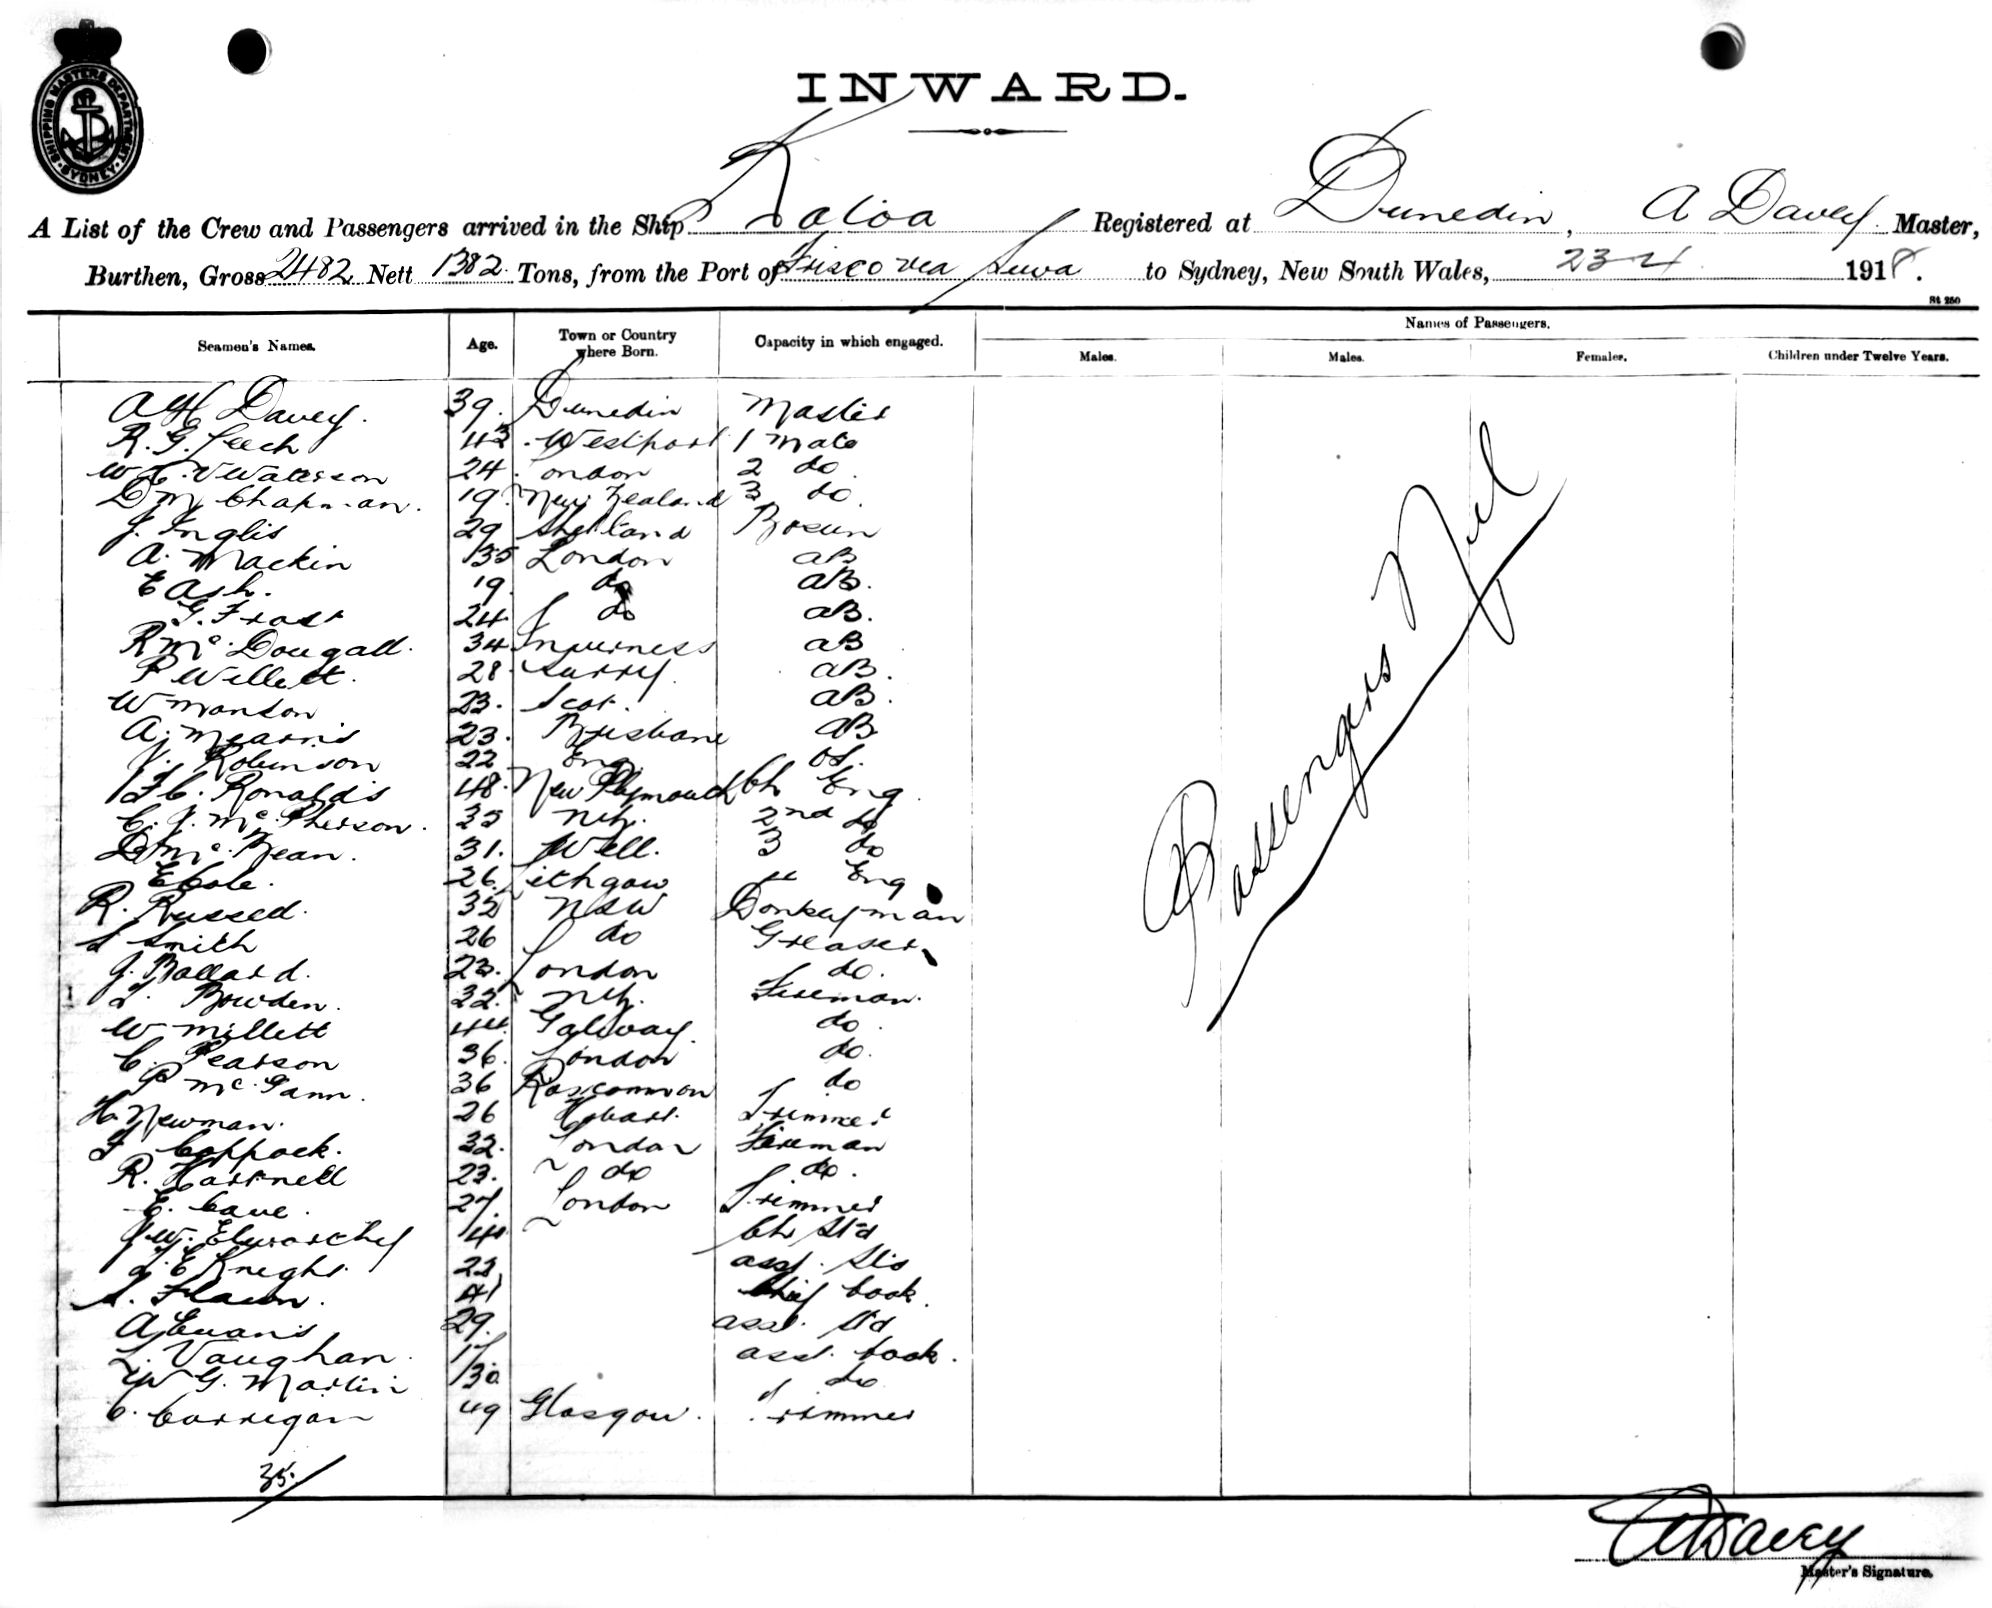 SHIPPING MASTERS DEPARTMENT
SYDNEY
INWARD.
A List of the Crew and Passengers arrived in the Ship Katoa Registered at Dunedin, A Davey Master,
Burthen, Gross 2482 Nett 1382 Tons, from the Port of Frisco via Suva to Sydney, New South Wales, 23 4 1918.
St 250
Seamen's Names. Age. Town or Country where Born. Capacity in which engaged. Names of Passengers.
Males. Males. Females. Children under Twelve Years.
A H Davey. 39. Dunedin Master
R. G. Leech 43. Westport 1 Mate
Waterson 24 London 2 do.
D M Chapman. 19. New Zealand 3 do.
J. Inglis 29 Shetland Bosun
A. Mackin 35 London AB
E Ash. 19. do AB.
G. Frost 24 do AB.
R Mc Dougall. 34 Inverness AB
P Willett. 28. Surry. AB.
W Manson 23. Scot. AB.
A. Mearns 23. Brisbane AB
J. Robinson 22 Eng. OS.
F C. Ronalds 48. New Plymouth Ch Eng.
C. J. Mc Pherson. 35 NZ. 2nd do
D Mc Bean. 31. Well. 3 do
E Cole. 26. Lithgow 4 Eng
R. Russell. 32 NSW Donkeyman
S Smith 26 do Greaser
J. Ballard. 23. London do.
Bowden. 32. NZ. Fireman.
W Millett 44. Galway. do.
C. Pearson 36. London do.
P Mc Gann. 36 Roscommon do
H. Newman. 26 Hobart. Trimmer
F Coppock. 32. London Fireman
R. Hartnell 23. do do.
E. Cave. 27. London Trimmer
J. W. 41 Ch Std
E Knight. 23 asst. Std
S. Flaun. 41 Chief Cook.
A Evans 29. asst. Std
L. Vaughan. 17 asst. Cook.
W G. Martin 30. do
C. Corrigan 49 Glasgow. Trimmer
35.
Passengers Nil
A Davey
Master's Signature.